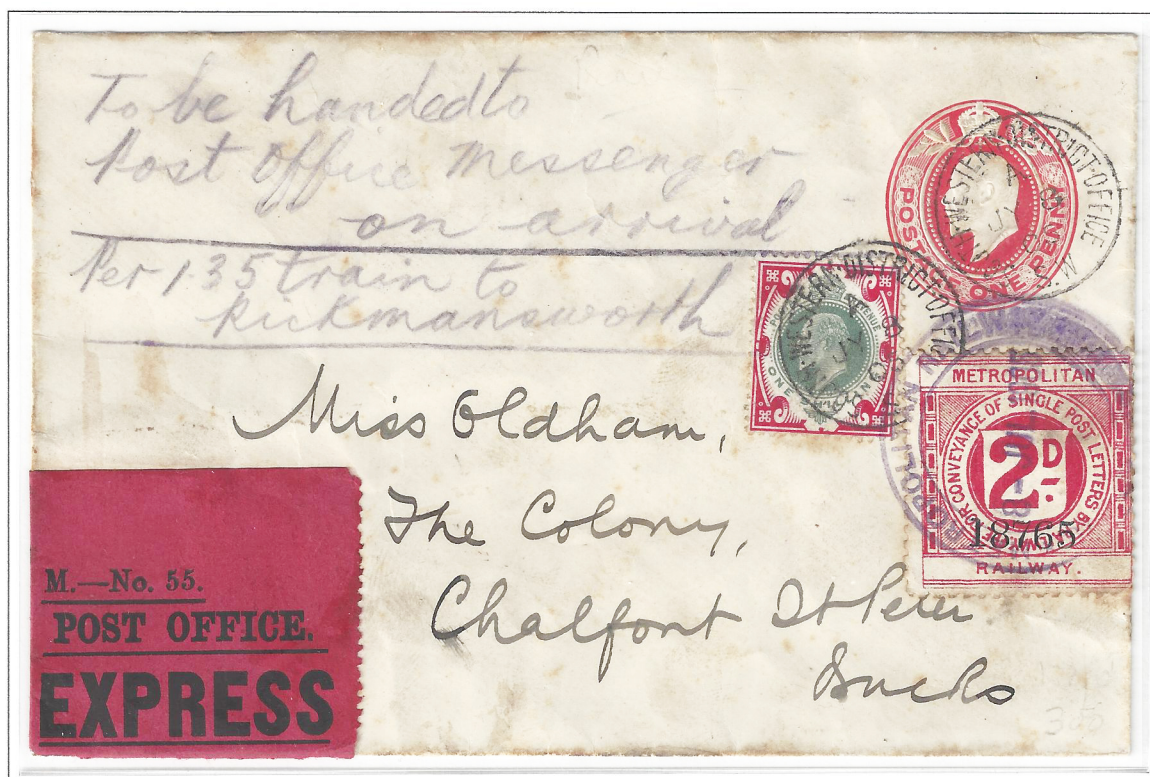 To be handed to
Post Office Messenger
on arrival
Per 1.35 train to
Rickmansworth
POSTAGE
ONE PENNY
WESTERN DISTRICT OFFICE
WESTERN DISTRICT OFFICE
METROPOLITAN
FEE FOR CONVEYANCE OF SINGLE POST LETTERS BY RAILWAY
2D
18765
RAILWAY.
Miss Oldham,
The Colony,
Chalfont St Peter
Bucks
M.—No. 55.
POST OFFICE.
EXPRESS